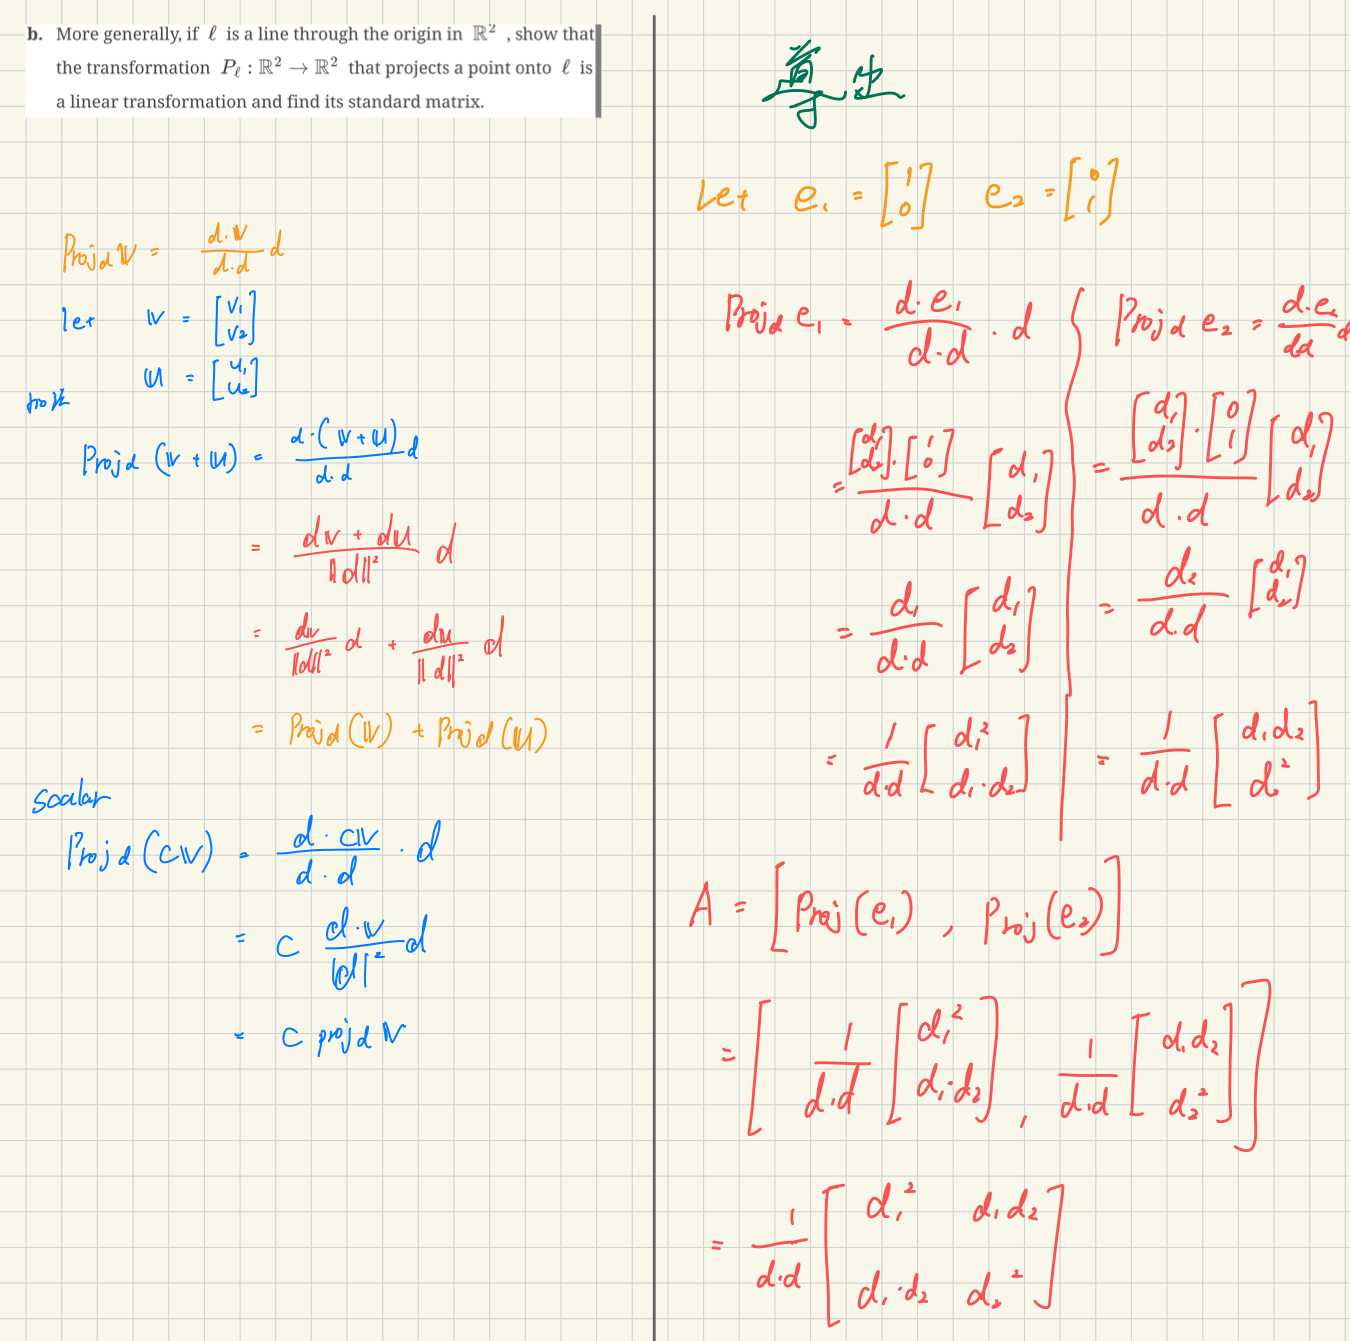 b. More generally, if ℓ is a line through the origin in ℝ² , show that
the transformation Pℓ : ℝ² → ℝ² that projects a point onto ℓ is
a linear transformation and find its standard matrix.
Proj_d 𝕍 = (d·𝕍)/(d·d) d
let 𝕍 = [v₁ v₂]
𝕌 = [u₁ u₂]
Proj_d (𝕍 + 𝕌) = (d·(𝕍+𝕌))/(d·d) d
= (d𝕍 + d𝕌)/‖d‖² d
= (d𝕍)/‖d‖² d + (d𝕌)/‖d‖² d
= Proj_d(𝕍) + Proj_d(𝕌)
scalar
Proj_d(c𝕍) = (d·c𝕍)/(d·d) · d
= c (d·𝕍)/‖d‖² d
= c proj_d 𝕍
Let e₁ = [1 0] e₂ = [0 1]
Proj_d e₁ = (d·e₁)/(d·d) · d
= ([d₁ d₂]·[1 0])/(d·d) [d₁ d₂]
= d₁/(d·d) [d₁ d₂]
= 1/(d·d) [d₁² d₁·d₂]
Proj_d e₂ = (d·e₂)/(dd) d
= ([d₁ d₂]·[0 1])/(d·d) [d₁ d₂]
= d₂/(d·d) [d₁ d₂]
= 1/(d·d) [d₁d₂ d₂²]
A = [Proj(e₁) , Proj(e₂)]
= [1/(d·d) [d₁² d₁·d₂] , 1/(d·d) [d₁d₂ d₂²]]
= 1/(d·d) [d₁² d₁d₂
d₁·d₂ d₂²]